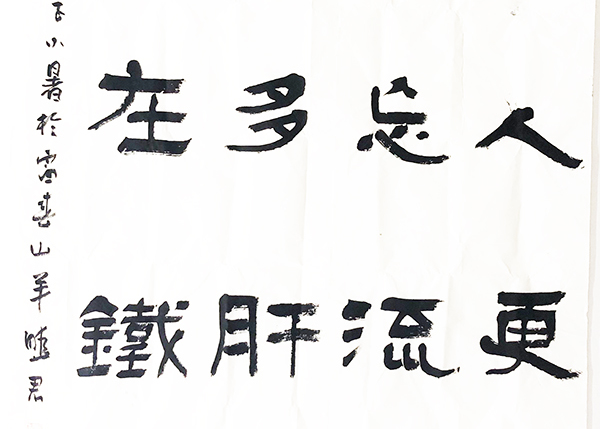 人更
忘流
多肝
在鐵
小暑於富春山羊曉君